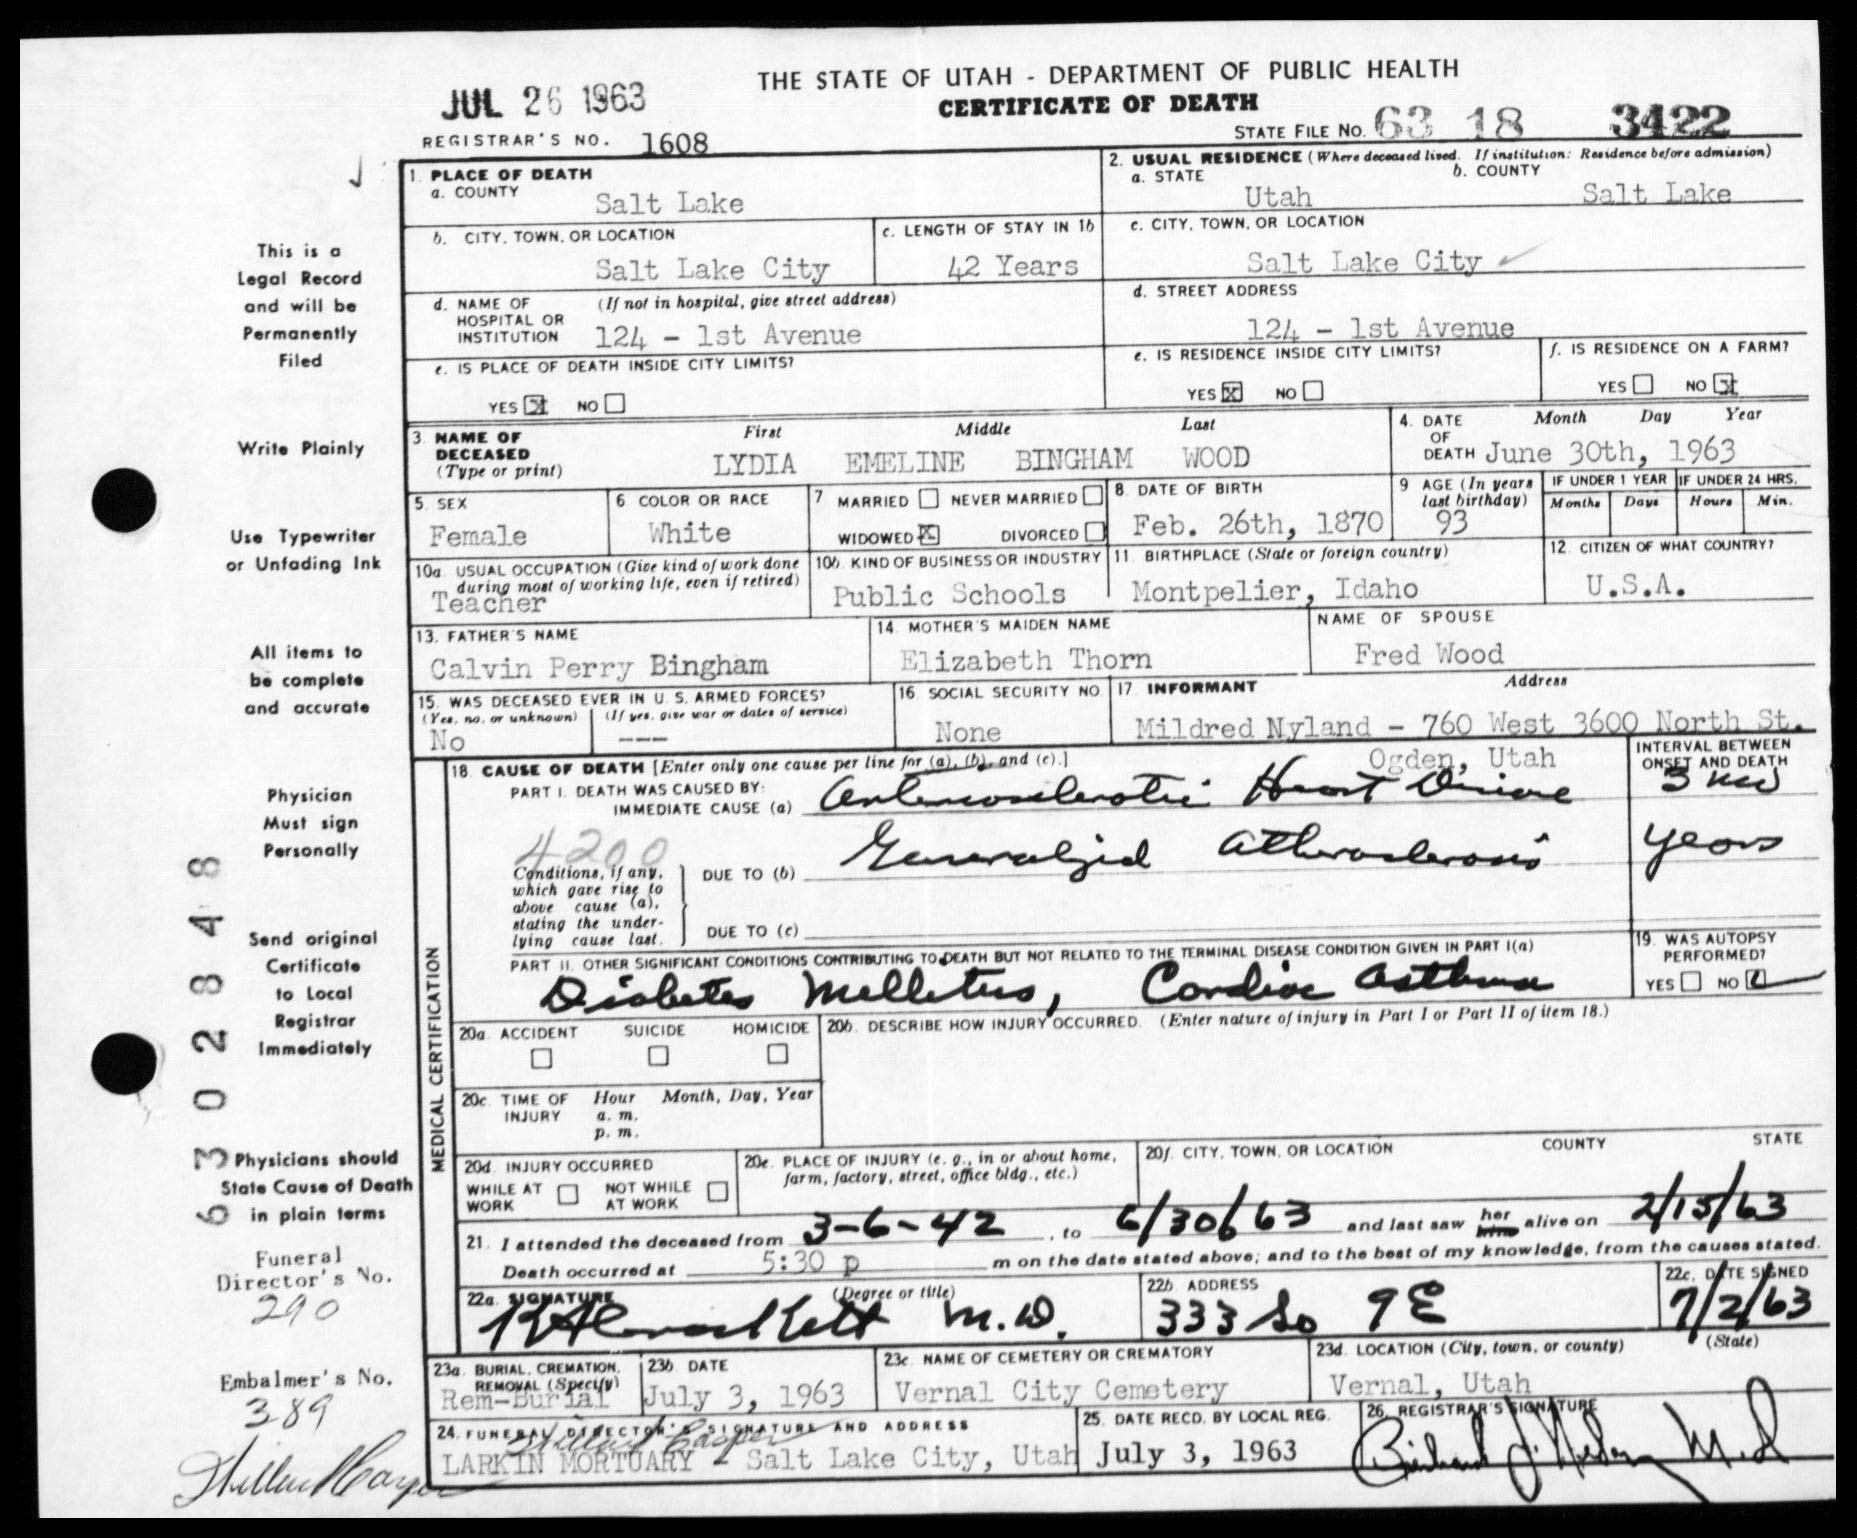 THE STATE OF UTAH - DEPARTMENT OF PUBLIC HEALTH
JUL 26 1963
CERTIFICATE OF DEATH
STATE FILE NO. 63 18 3422
REGISTRAR'S NO. 1608
This is a
Legal Record
and will be
Permanently
Filed
Write Plainly
Use Typewriter
or Unfading Ink
All items to
be complete
and accurate
Physician
Must sign
Personally
Send original
Certificate
to Local
Registrar
Immediately
Physicians should
State Cause of Death
in plain terms
Funeral
Director's No.
290
Embalmer's No.
389
6 3 0 2 8 4 8
1. PLACE OF DEATH
a. COUNTY
Salt Lake
2. USUAL RESIDENCE (Where deceased lived. If institution: Residence before admission)
a. STATE
Utah
b. COUNTY
Salt Lake
b. CITY, TOWN, OR LOCATION
Salt Lake City
c. LENGTH OF STAY IN 1b
42 Years
c. CITY, TOWN, OR LOCATION
Salt Lake City
d. NAME OF HOSPITAL OR INSTITUTION
(If not in hospital, give street address)
124 - 1st Avenue
d. STREET ADDRESS
124 - 1st Avenue
e. IS PLACE OF DEATH INSIDE CITY LIMITS?
YES X NO
e. IS RESIDENCE INSIDE CITY LIMITS?
YES X NO
f. IS RESIDENCE ON A FARM?
YES NO X
3. NAME OF DECEASED (Type or print)
First Middle Last
LYDIA EMELINE BINGHAM WOOD
4. DATE OF DEATH
Month Day Year
June 30th, 1963
5. SEX
Female
6 COLOR OR RACE
White
7 MARRIED NEVER MARRIED
WIDOWED X DIVORCED
8. DATE OF BIRTH
Feb. 26th, 1870
9 AGE (In years last birthday)
93
IF UNDER 1 YEAR
Months Days
IF UNDER 24 HRS.
Hours Min.
10a. USUAL OCCUPATION (Give kind of work done during most of working life, even if retired)
Teacher
10b. KIND OF BUSINESS OR INDUSTRY
Public Schools
11. BIRTHPLACE (State or foreign country)
Montpelier, Idaho
12. CITIZEN OF WHAT COUNTRY?
U.S.A.
13. FATHER'S NAME
Calvin Perry Bingham
14. MOTHER'S MAIDEN NAME
Elizabeth Thorn
NAME OF SPOUSE
Fred Wood
15. WAS DECEASED EVER IN U. S. ARMED FORCES?
(Yes, no, or unknown) (If yes, give war or dates of service)
No ---
16. SOCIAL SECURITY NO.
None
17. INFORMANT Address
Mildred Nyland - 760 West 3600 North St.
Ogden, Utah
MEDICAL CERTIFICATION
18. CAUSE OF DEATH [Enter only one cause per line for (a), (b), and (c).]
INTERVAL BETWEEN ONSET AND DEATH
PART I. DEATH WAS CAUSED BY:
IMMEDIATE CAUSE (a) Arteriosclerotic Heart Disease
4200
Conditions, if any, which gave rise to above cause (a), stating the underlying cause last.
DUE TO (b) Generalized Atherosclerosis years
DUE TO (c)
PART II. OTHER SIGNIFICANT CONDITIONS CONTRIBUTING TO DEATH BUT NOT RELATED TO THE TERMINAL DISEASE CONDITION GIVEN IN PART I(a)
Diabetes Mellitus, Cardiac Asthma
19. WAS AUTOPSY PERFORMED?
YES NO
20a. ACCIDENT SUICIDE HOMICIDE
20b. DESCRIBE HOW INJURY OCCURRED. (Enter nature of injury in Part I or Part II of item 18.)
20c. TIME OF INJURY
Hour Month, Day, Year
a. m.
p. m.
20d. INJURY OCCURRED
WHILE AT WORK NOT WHILE AT WORK
20e. PLACE OF INJURY (e. g., in or about home, farm, factory, street, office bldg., etc.)
20f. CITY, TOWN, OR LOCATION COUNTY STATE
21. I attended the deceased from 3-6-42, to 6/30/63 and last saw her him alive on 2/15/63
Death occurred at 5:30 p m on the date stated above; and to the best of my knowledge, from the causes stated.
22a. SIGNATURE (Degree or title)
M.D.
22b. ADDRESS
333 So 9 E
22c. DATE SIGNED
7/2/63
23a. BURIAL, CREMATION, REMOVAL (Specify)
Rem-Burial
23b. DATE
July 3, 1963
23c. NAME OF CEMETERY OR CREMATORY
Vernal City Cemetery
23d. LOCATION (City, town, or county) (State)
Vernal, Utah
24. FUNERAL DIRECTOR'S SIGNATURE AND ADDRESS
LARKIN MORTUARY - Salt Lake City, Utah
25. DATE RECD. BY LOCAL REG.
July 3, 1963
26. REGISTRAR'S SIGNATURE
M.D